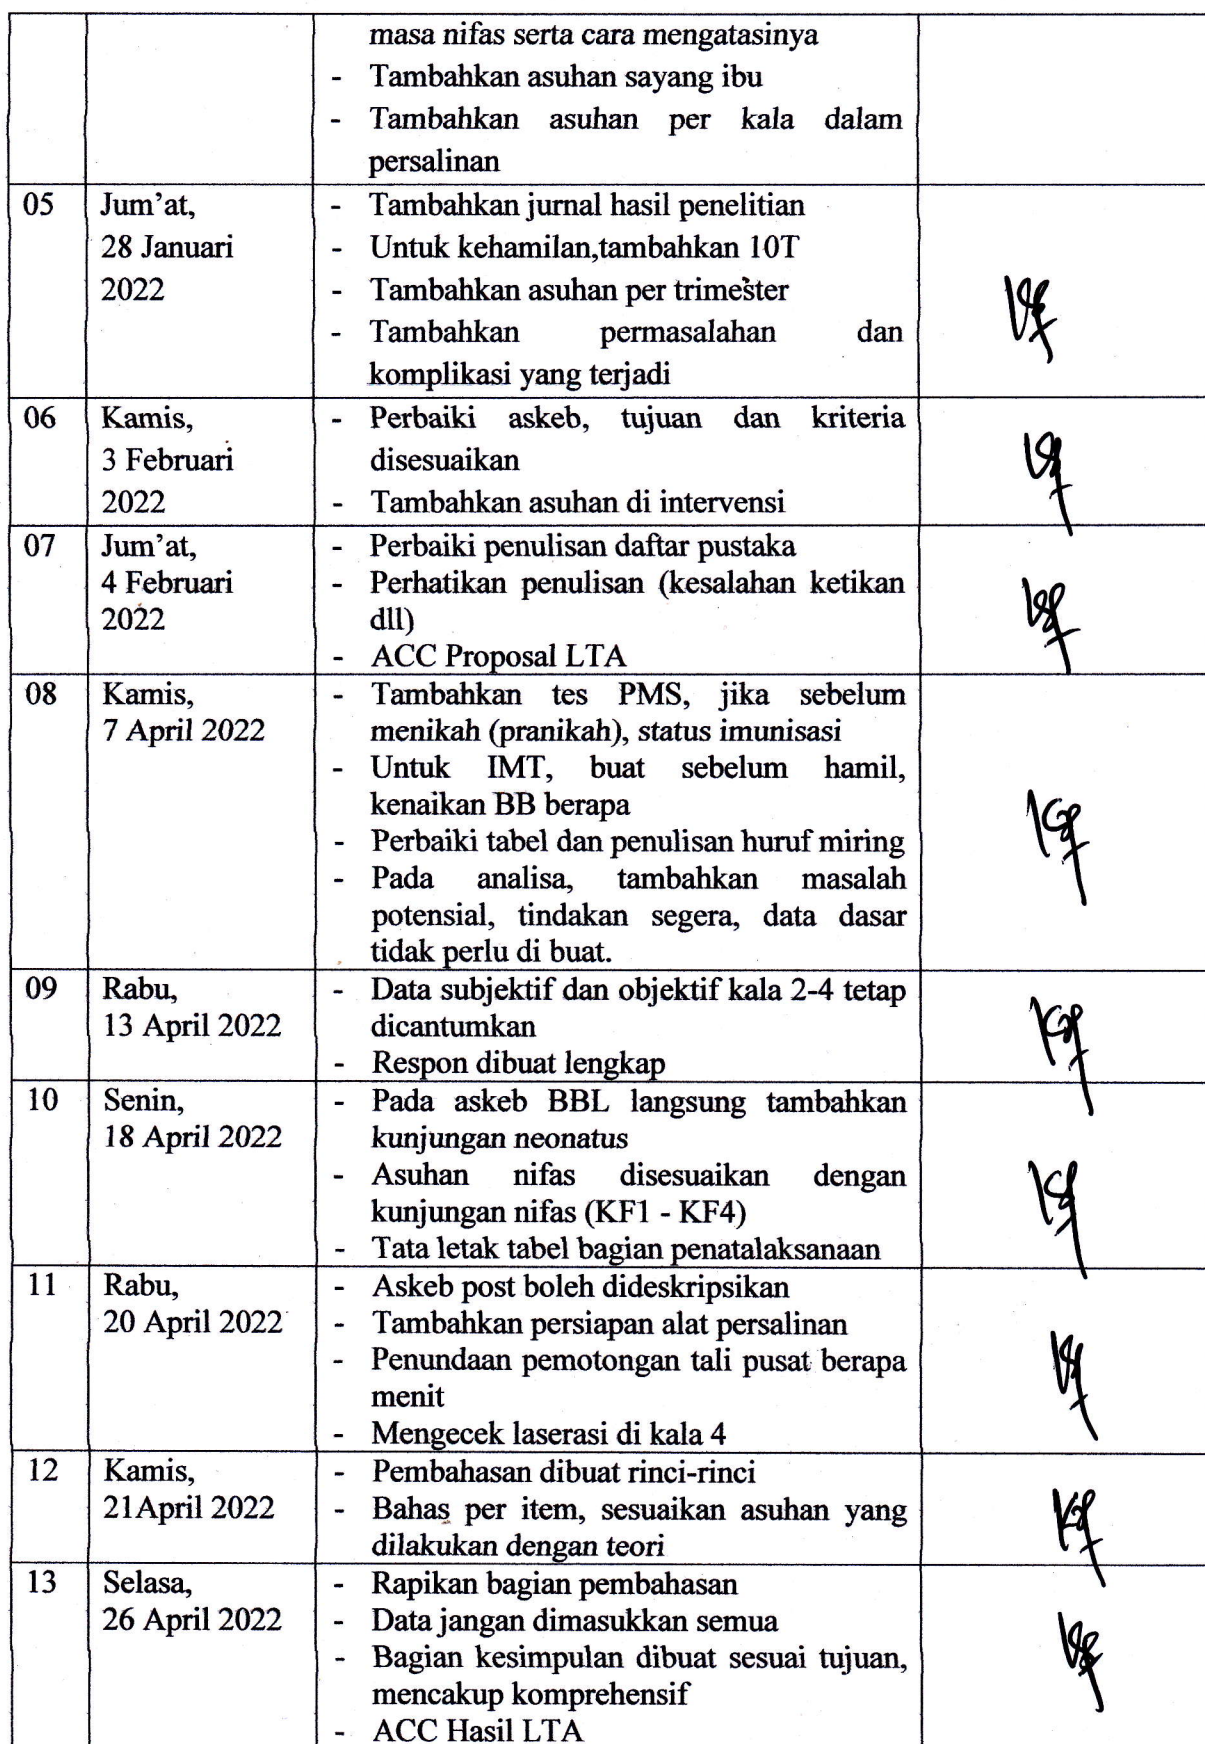 masa nifas serta cara mengatasinya
- Tambahkan asuhan sayang ibu
- Tambahkan asuhan per kala dalam
persalinan
05 Jum'at, - Tambahkan jurnal hasil penelitian
28 Januari - Untuk kehamilan,tambahkan 10T
2022 - Tambahkan asuhan per trimester
- Tambahkan permasalahan dan
komplikasi yang terjadi
06 Kamis, - Perbaiki askeb, tujuan dan kriteria
3 Februari disesuaikan
2022 - Tambahkan asuhan di intervensi
07 Jum'at, - Perbaiki penulisan daftar pustaka
4 Februari - Perhatikan penulisan (kesalahan ketikan
2022 dll)
- ACC Proposal LTA
08 Kamis, - Tambahkan tes PMS, jika sebelum
7 April 2022 menikah (pranikah), status imunisasi
- Untuk IMT, buat sebelum hamil,
kenaikan BB berapa
- Perbaiki tabel dan penulisan huruf miring
- Pada analisa, tambahkan masalah
potensial, tindakan segera, data dasar
tidak perlu di buat.
09 Rabu, - Data subjektif dan objektif kala 2-4 tetap
13 April 2022 dicantumkan
- Respon dibuat lengkap
10 Senin, - Pada askeb BBL langsung tambahkan
18 April 2022 kunjungan neonatus
- Asuhan nifas disesuaikan dengan
kunjungan nifas (KF1 - KF4)
- Tata letak tabel bagian penatalaksanaan
11 Rabu, - Askeb post boleh dideskripsikan
20 April 2022 - Tambahkan persiapan alat persalinan
- Penundaan pemotongan tali pusat berapa
menit
- Mengecek laserasi di kala 4
12 Kamis, - Pembahasan dibuat rinci-rinci
21April 2022 - Bahas per item, sesuaikan asuhan yang
dilakukan dengan teori
13 Selasa, - Rapikan bagian pembahasan
26 April 2022 - Data jangan dimasukkan semua
- Bagian kesimpulan dibuat sesuai tujuan,
mencakup komprehensif
- ACC Hasil LTA